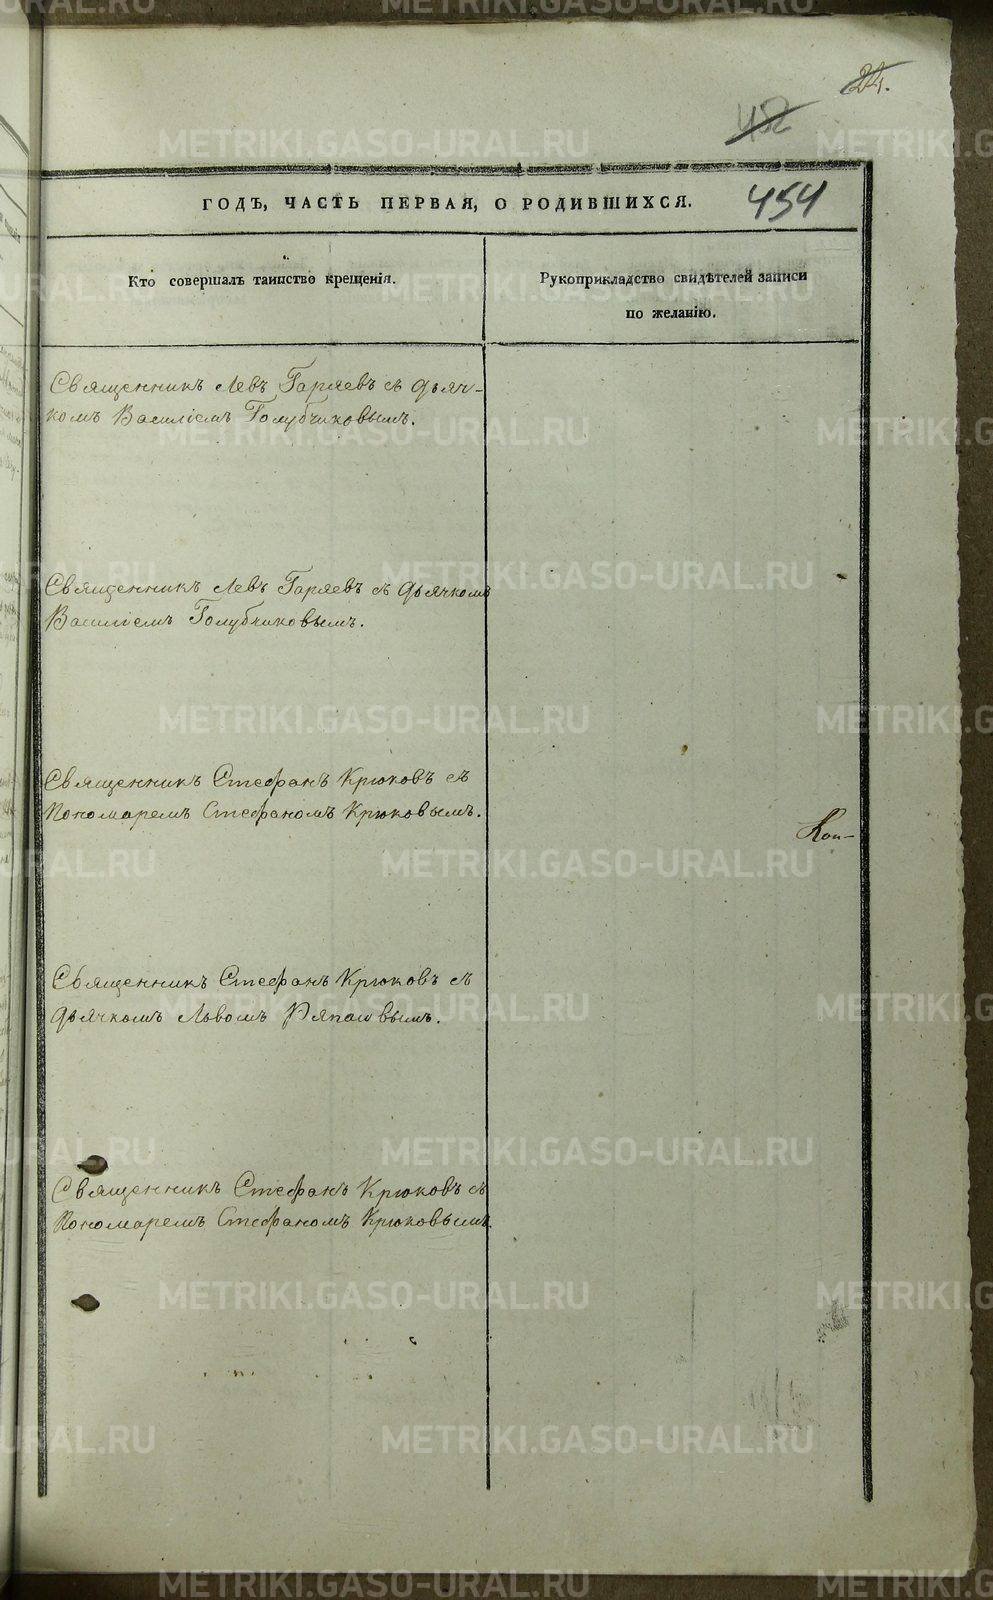 24.
452
454
ГОДЪ, ЧАСТЬ ПЕРВАЯ, О РОДИВШИХСЯ.
Кто совершалъ таинство крещенія.
Рукоприкладство свидѣтелей записи
по желанію.
Священникъ Левъ Гаряевъ съ дьяч-
комъ Василіемъ Голубчиковымъ.
Священникъ Левъ Гаряевъ съ дьячкомъ
Василіемъ Голубчиковымъ.
Священникъ Стефанъ Крюковъ съ
Пономаремъ Стефаномъ Крюковымъ.
Коп-
Священникъ Стефанъ Крюковъ съ
дьячкомъ Львомъ
Священникъ Стефанъ Крюковъ съ
Пономаремъ Стефаномъ Крюковымъ.
METRIKI.GASO-URAL.RU